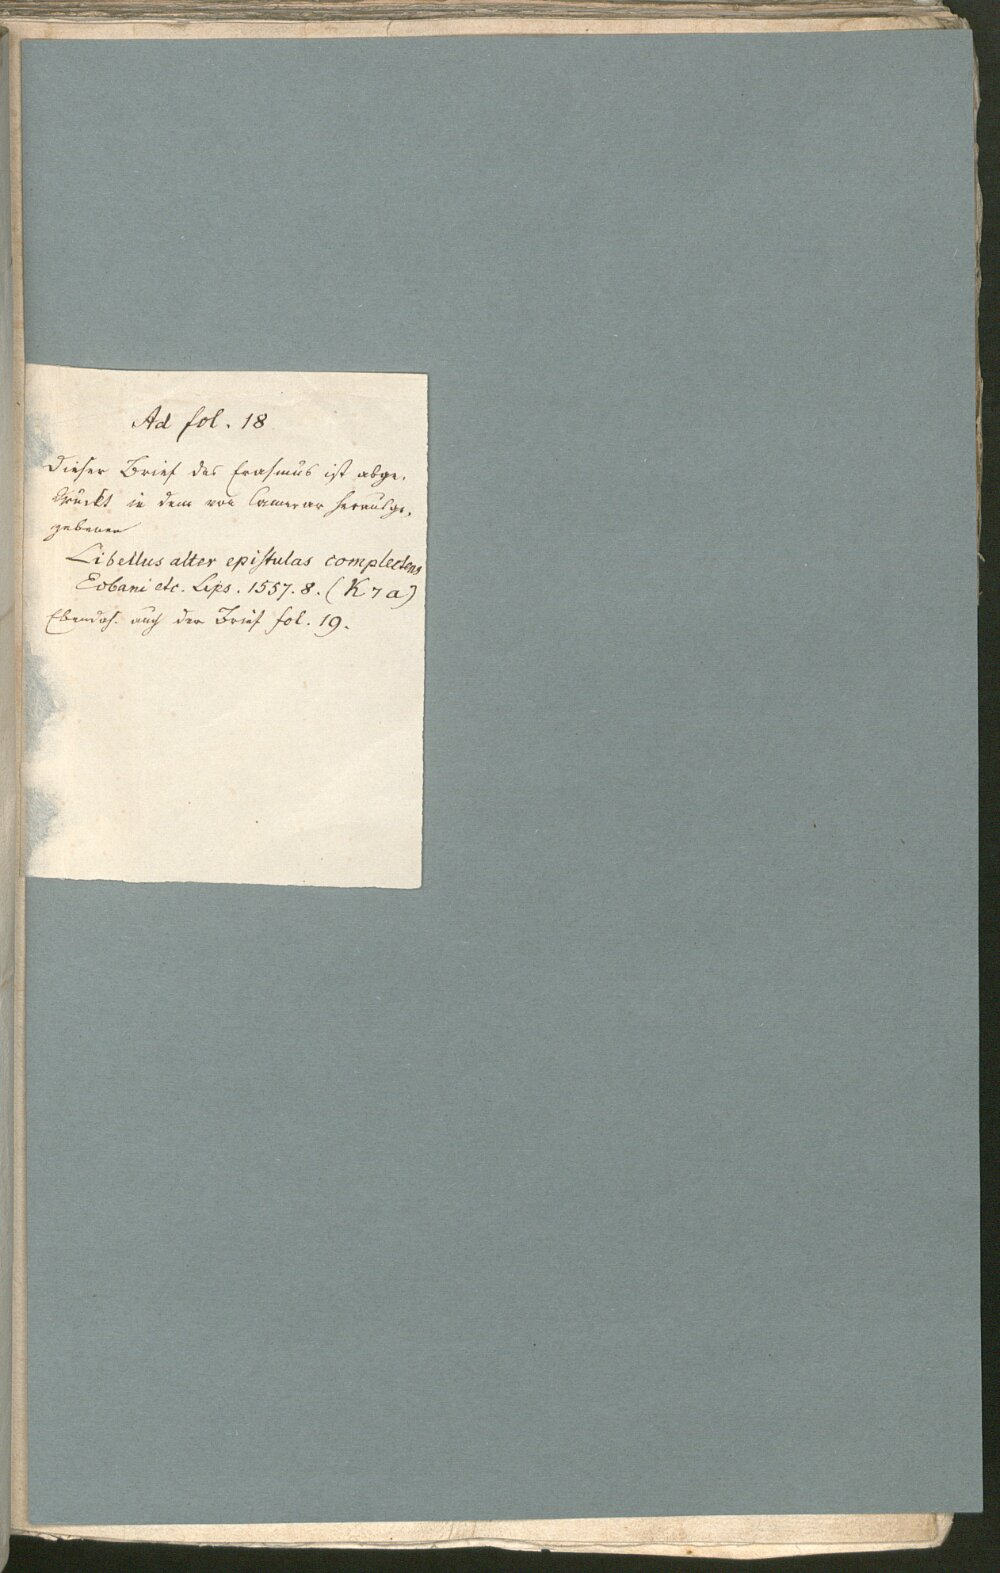 Ad fol. 18
Dieser Brief des Erasmus ist abge-
druckt in dem von Camerar herausge-
gebenen
Libellus alter epistulas complectens
Eobani etc. Lips. 1557. 8. (K 7 a)
Ebendas. auch der Brief fol. 19.